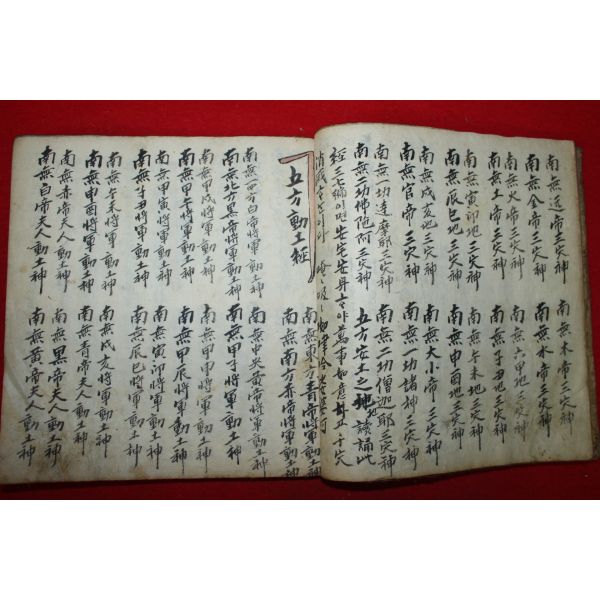 南無近帝三灾神 南無木帝三灾神
南無金帝三灾神 南無水帝三灾神
南無火帝三灾神 南無六甲地三灾神
南無土帝三灾神 南無子丑地三灾神
南無寅卯地三灾神 南無午未地三灾神
南無辰巳地三灾神 南無申酉地三灾神
南無戌亥地三灾神 南無大小帝三灾神
南無官帝三灾神 南無一切諸神三灾神
南無一功達摩耶三灾神 南無二功僧迦耶三灾神
南無功佛陀阿三灾神 五方安土之地讀誦此
經三編이면安宅安身 萬事如意
消滅
五方動土經
南無東方青帝將軍動土神
南無南方赤帝將軍動土神
南無西方白帝將軍動土神 南無中央黃帝將軍動土神
南無北方黑帝將軍動土神 南無甲子將軍動土神
南無甲戌將軍動土神 南無甲申將軍動土神
南無甲午將軍動土神 南無甲辰將軍動土神
南無甲寅將軍動土神 南無寅卯將軍動土神
南無子丑將軍動土神 南無辰巳將軍動土神
南無午未將軍動土神 南無戌亥將軍動土神
南無申酉將軍動土神 南無青帝夫人動土神
南無赤帝夫人動土神 南無黑帝夫人動土神
南無白帝夫人動土神 南無黃帝夫人動土神